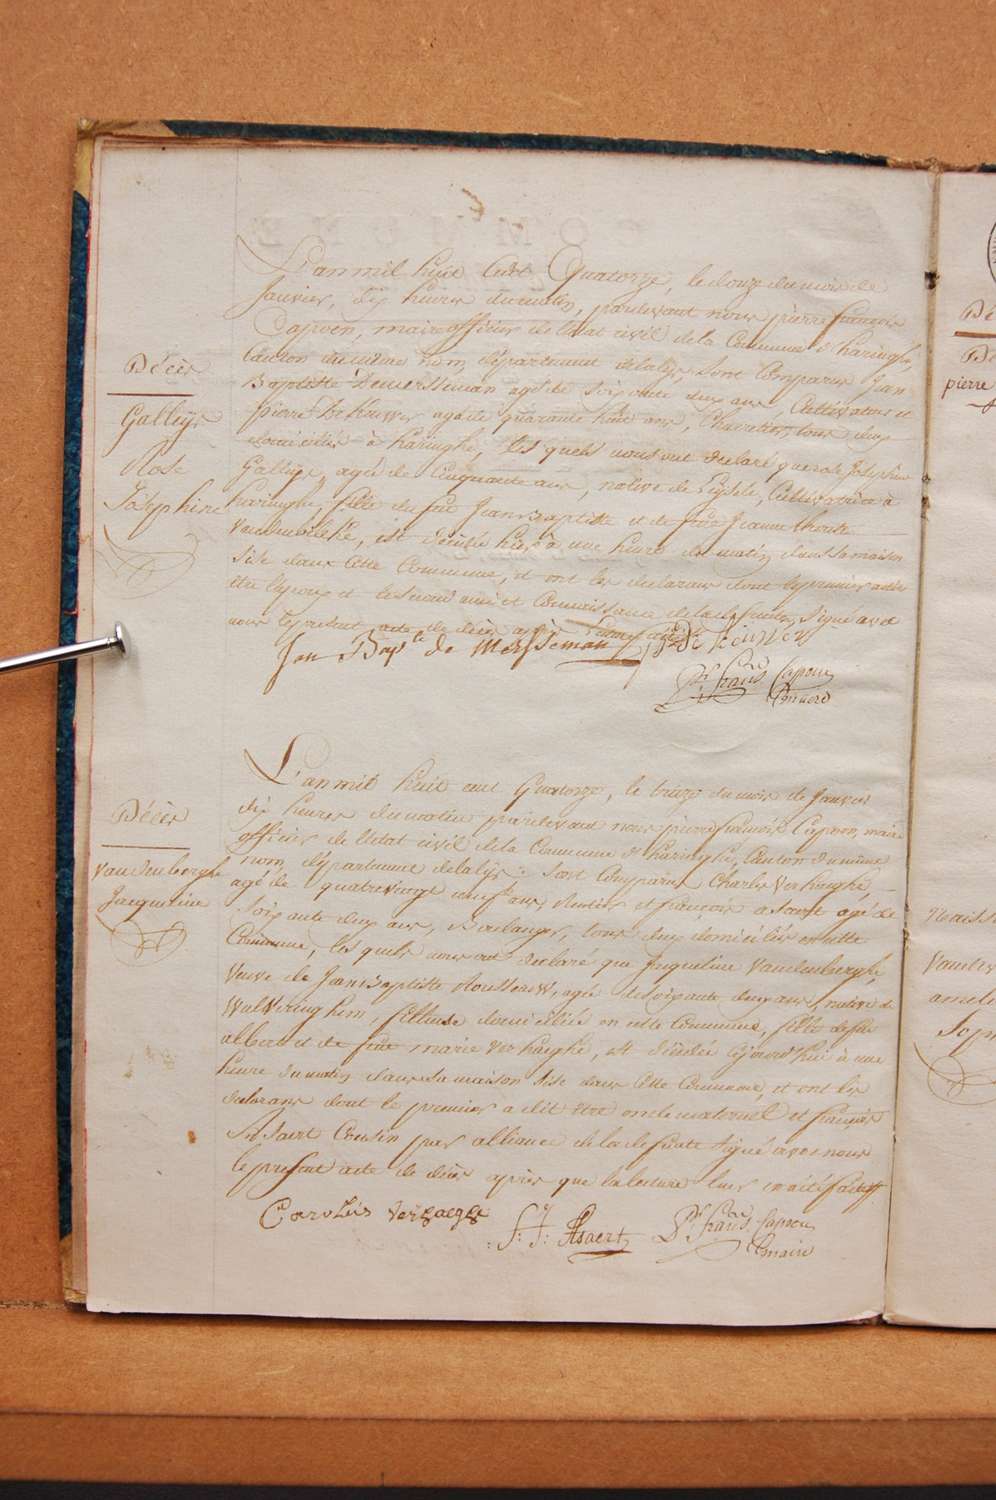 Décès
Galleys
Rose
Josephine
L'an mil huit Cent Quatorze, le douze du mois de
Janvier, dix heures du matin, pardevant nous pierre françois
Capoen, maire officier de l'état civil de la Commune d'haringhe,
Canton du même nom, département de la lys, sont Comparus Jean
Baptiste Demerssman agé de soixante deux ans, Cultivateur et
pierre De Keuwer agé de quarante huit ans, Charretier, tous deux
domiciliés à haringhe, les quels nous ont declaré que rose Josephine
Galleys, agée de Cinquante ans, native de Cultivatrice à
haringhe, fille de feu Jean Baptiste et de feue Jeanne
est décédée hier à une heure du matin dans sa maison
sise dans Cette Commune, et ont les declarans dont le premier a dit
être l'epoux et le second ami et Connaissance de la defunte, signé avec
nous le present acte de décès après
Jan Bapte de Mersseman
Pr Frans Capoen
maire
Décès
Vandenberghe
Jacqueline
L'an mil huit cent Quatorze, le treize du mois de Janvier
dix heures du matin pardevant nous pierre françois Capoen, maire
officier de l'état civil de la Commune d'haringhe, Canton du même
nom, département de la lys : sont Comparus Charles Verhaeghe,
agé de quatrevingt neuf ans, rentier et françois asaert agé de
soixante deux ans, boulanger, tous deux domiciliés en cette
Commune, les quels nous ont declaré que Jacqueline Vandenberghe,
Veuve de Jean Baptiste Rousseeuw, agée de soixante deux ans, native de
Wulveringhem, fileuse domiciliée en cette Commune, fille de feu
albert et de feue marie Verhaeghe, est décédée cejourd'hui à une
heure du matin dans sa maison sise dans Cette Commune, et ont les
declarans dont le premier a dit être oncle maternel et françois
asaert Cousin par alliance de la defunte signé avec nous
le present acte de décès après que la lecture leur en a été faite
Carolus Verhaeghe
F: J: Asaert
Pr Frans Capoen
maire
Dé
pierre
Vande
Sop